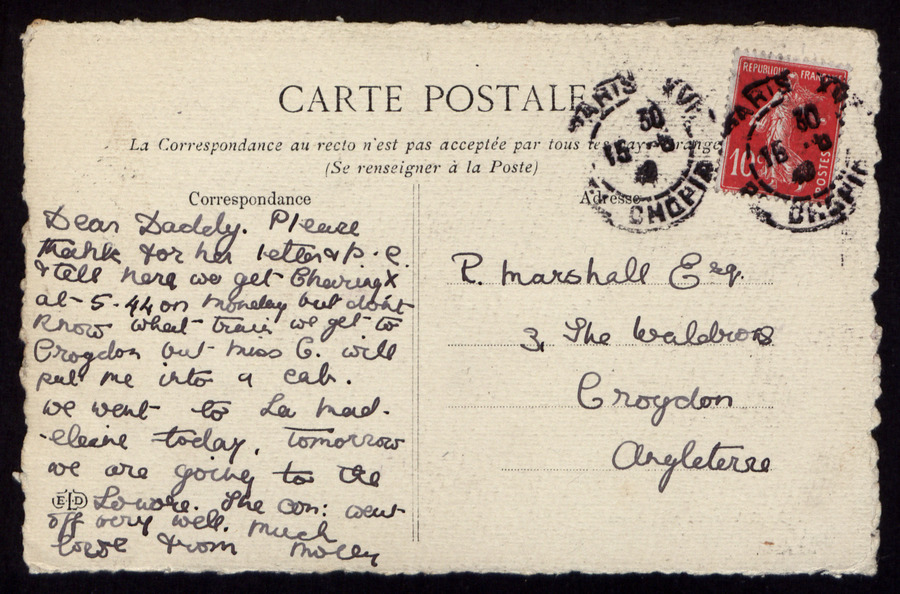 CARTE POSTALE
La Correspondance au recto n'est pas acceptée par tous les pays étrangers
(Se renseigner à la Poste)
Correspondance
Adresse
REPUBLIQUE FRANÇAISE
10
POSTES
PARIS XVI
15 30
CHOPIN
PARIS XVI
15 30
CHOPIN
Dear Daddy. Please
thank for her letter & p.c.
& tell here we get Charing X
at 5.44 on Monday but don't
know what train we get to
Croydon but Miss C. will
put me into a cab.
we went to La Mad-
-eleine today, tomorrow
we are going to the
ED Louvre. The con: went
off very well. much
love from Molly
P. Marshall Esq.
3, The Waldrons
Croydon
Angleterre